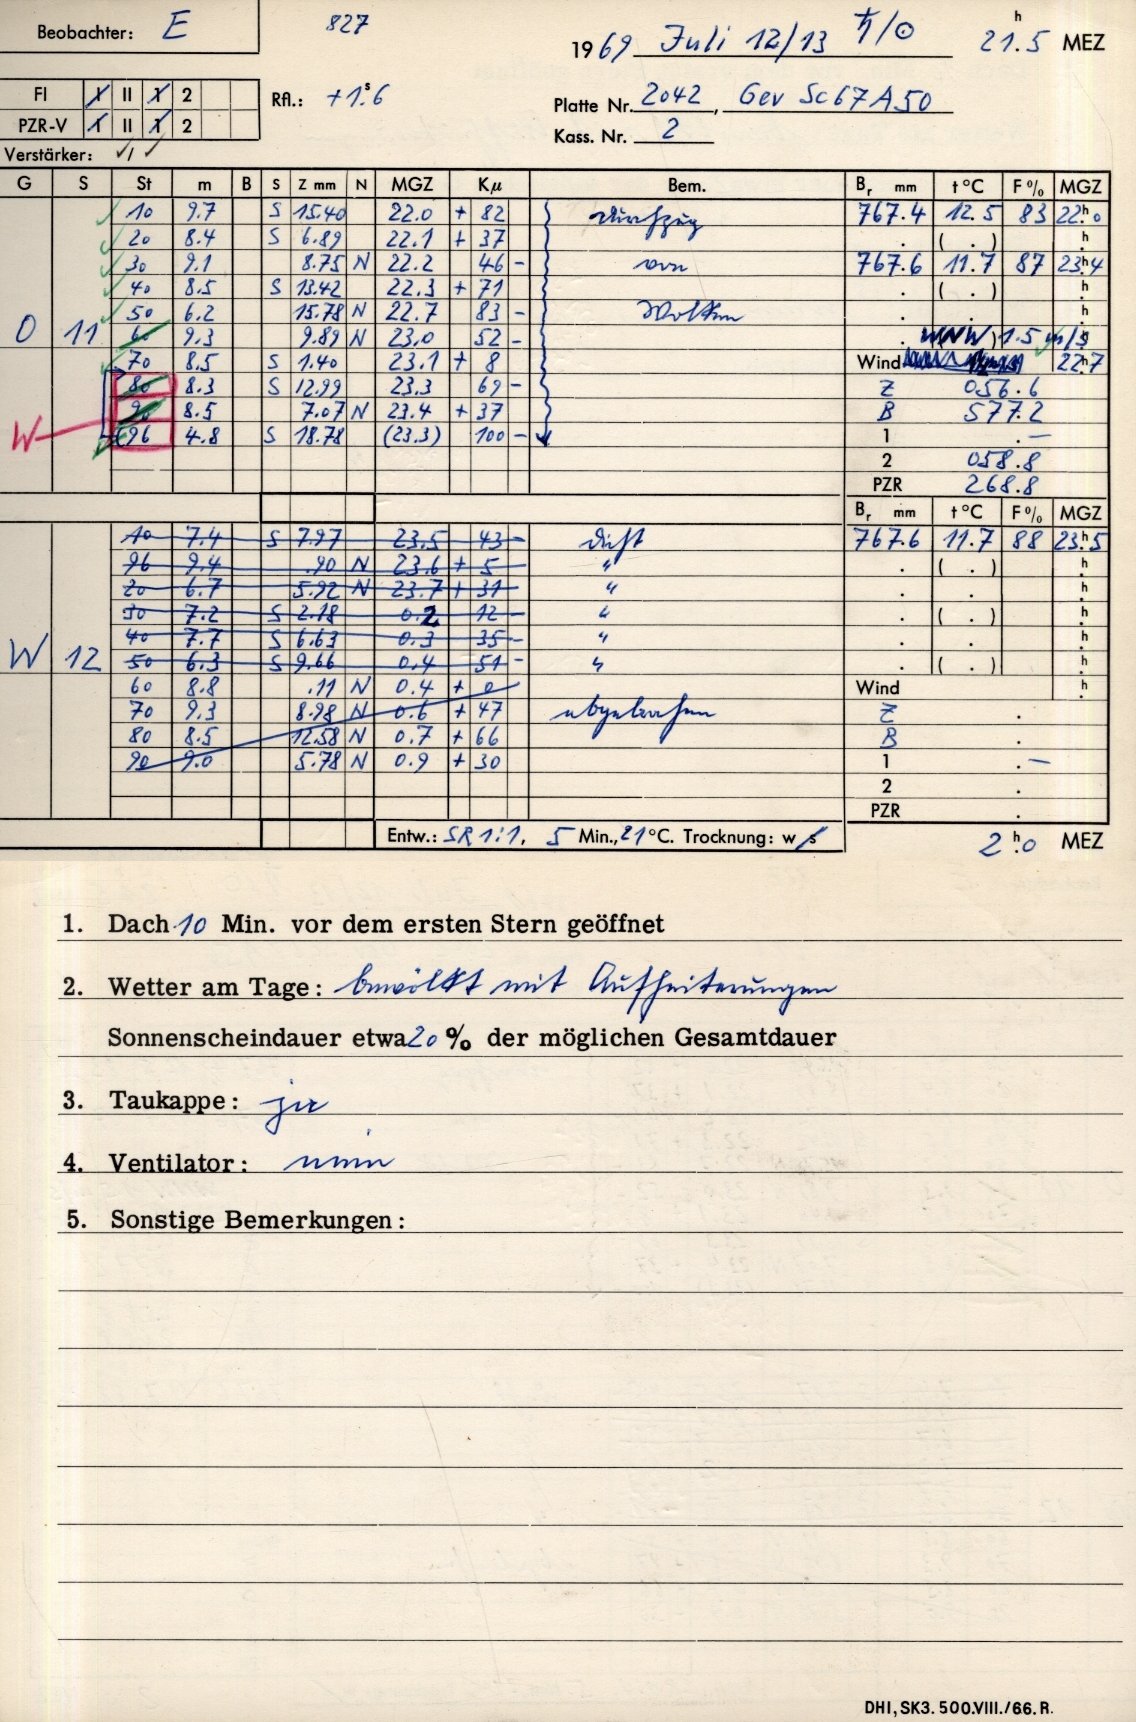 Beobachter: E
827
1969 Juli 12/13 ♄/☉ 21.ʰ5 MEZ
FI I II 1 2
PZR-V I II 1 2
Verstärker: ✓/✓
Rfl.: +1.ˢ6
Platte Nr. 2042, Gev Sc67A50
Kass. Nr. 2
G S St m B S Z mm N MGZ Kμ Bem. Bᵣ mm t°C F% MGZ
10 9.7 S 15.40 22.0 + 82 Durchzug 767.4 12.5 83 22ʰ.0
20 8.4 S 6.89 22.1 + 37 . ( . ) ʰ.
30 9.1 8.75 N 22.2 46 - von 767.6 11.7 87 23ʰ.4
40 8.5 S 13.42 22.3 + 71 . ( . ) ʰ.
50 6.2 15.78 N 22.7 83 - Wolken . . ʰ.
O 11 60 9.3 9.89 N 23.0 52 - . WNW 1.5 m/s
70 8.5 S 1.40 23.1 + 8 Wind 22ʰ.7
80 8.3 S 12.99 23.3 69 - Z 056.6
90 8.5 7.07 N 23.4 + 37 B 577.2
W (96 4.8 S 18.78 (23.3) 100 - 1 . —
2 058.8
PZR 268.8
Bᵣ mm t°C F% MGZ
10 7.4 S 7.97 23.5 43 - Dicht 767.6 11.7 88 23ʰ.5
96 9.4 .90 N 23.6 + 5 " . ( . ) ʰ.
20 6.7 5.92 N 23.7 + 31 " . . ʰ.
30 7.2 S 2.18 0.2 12 - " . ( . ) ʰ.
40 7.7 S 6.63 0.3 35 - " . . ʰ.
W 12 50 6.3 S 9.66 0.4 51 - " . ( . ) ʰ.
60 8.8 .11 N 0.4 + 0 Wind ʰ.
70 9.3 8.98 N 0.6 + 47 abgebrochen Z .
80 8.5 12.58 N 0.7 + 66 B .
90 9.0 5.78 N 0.9 + 30 1 . —
2 .
PZR .
Entw.: SR 1:1, 5 Min., 21 °C. Trocknung: w/s
2ʰ.0 MEZ
1. Dach 10 Min. vor dem ersten Stern geöffnet
2. Wetter am Tage: bewölkt mit Aufheiterungen
Sonnenscheindauer etwa 20 % der möglichen Gesamtdauer
3. Taukappe: ja
4. Ventilator: nein
5. Sonstige Bemerkungen:
DHI, SK3. 500.VIII./66. R.